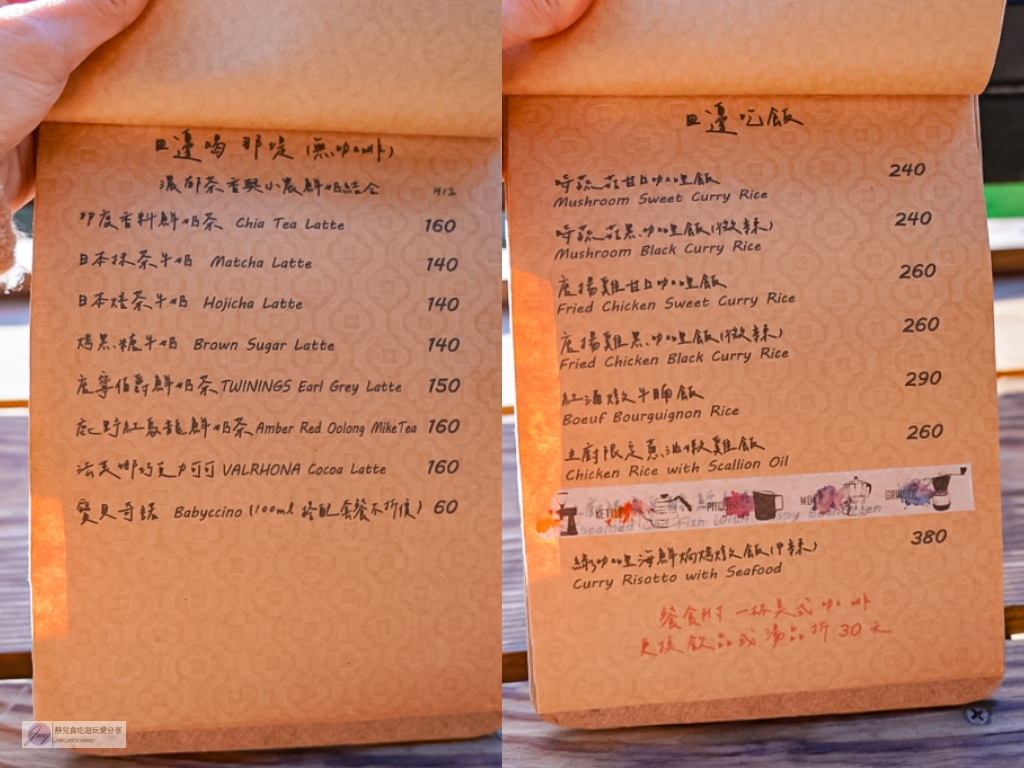 日邊喝 那堤 (無咖啡)
濃郁茶香與小農鮮奶結合 H/I
印度香料鮮奶茶 Chia Tea Latte 160
日本抹茶牛奶 Matcha Latte 140
日本焙茶牛奶 Hojicha Latte 140
烤黑糖牛奶 Brown Sugar Latte 140
唐寧伯爵鮮奶茶 TWININGS Earl Grey Latte 150
鹿野紅烏龍鮮奶茶 Amber Red Oolong MikeTea 160
法芙娜巧克力可可 VALRHONA Cocoa Latte 160
寶貝奇諾 Babyccino (100ml 搭配套餐不折價) 60
靜兒貪吃遊玩愛分享
日邊吃飯
時蔬菇甘口咖哩飯 240
Mushroom Sweet Curry Rice
時蔬菇黑咖哩飯(微辣) 240
Mushroom Black Curry Rice
唐揚雞甘口咖哩飯 260
Fried Chicken Sweet Curry Rice
唐揚雞黑咖哩飯(微辣) 260
Fried Chicken Black Curry Rice
紅酒燉牛腩飯 290
Boeuf Bourguignon Rice
主廚限定蔥油嫩雞飯 260
Chicken Rice with Scallion Oil
綠咖哩海鮮焗烤燉飯(中辣) 380
Curry Risotto with Seafood
餐食附一杯美式咖啡
更換飲品或湯品折30元